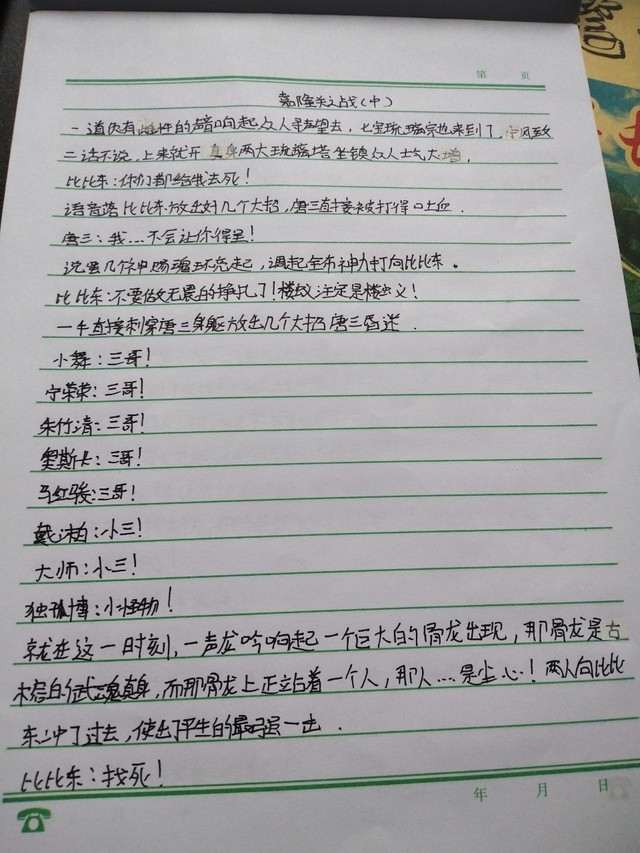 第 页
嘉陵关之战(中)
一道仿有磁性的声音响起众人寻着望去，七宝琉璃宗也来到了，宁风致
二话不说，上来就开真身两大琉璃塔坐镇众人士气大增，
比比东：你们都给我去死！
语音落比比东放出好几个大招，唐三直接被打得口吐血．
唐三：我...不会让你得逞！
说罢几个神赐魂环亮起，调起全部神力打向比比东。
比比东：不要做无畏的挣扎了！蝼蚁注定是蝼蚁！
一手直接刺穿唐三身躯放出几个大招唐三昏迷．
小舞：三哥！
宁荣荣：三哥！
朱竹清：三哥！
奥斯卡：三哥！
马红骏：三哥！
戴沐白：小三！
大师：小三！
独孤博：小怪物！
就在这一时刻，一声龙吟响起一个巨大的骨龙出现，那骨龙是古
榕的武魂真身，而那骨龙上正立站着一个人，那人....是尘心！两人向比比
东冲了过去，使出了平生的最强一击．
比比东：找死！
年 月 日